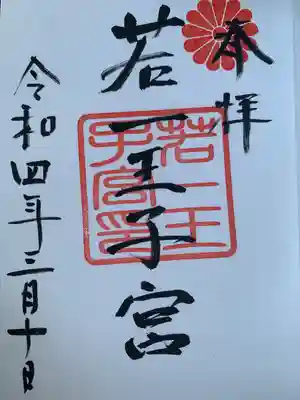 奉拝
若一王子宮
若一王
子宮印
令和四年三月十日